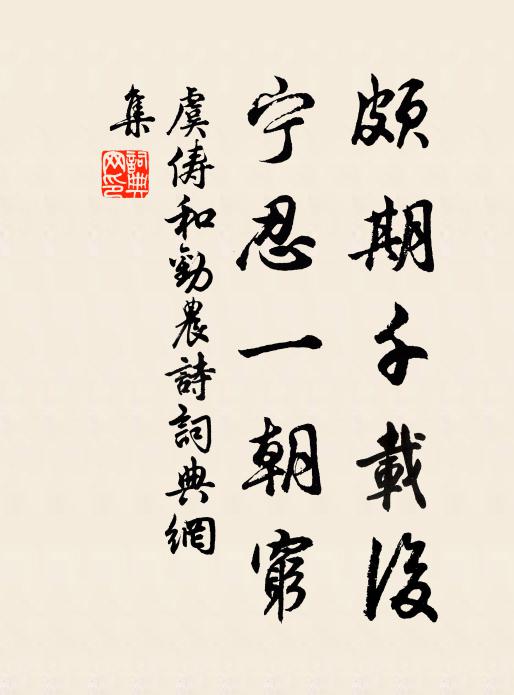 頗期千載後
宁忍一朝窮
虞儔和勸農詩詞典網
集
詞典網印